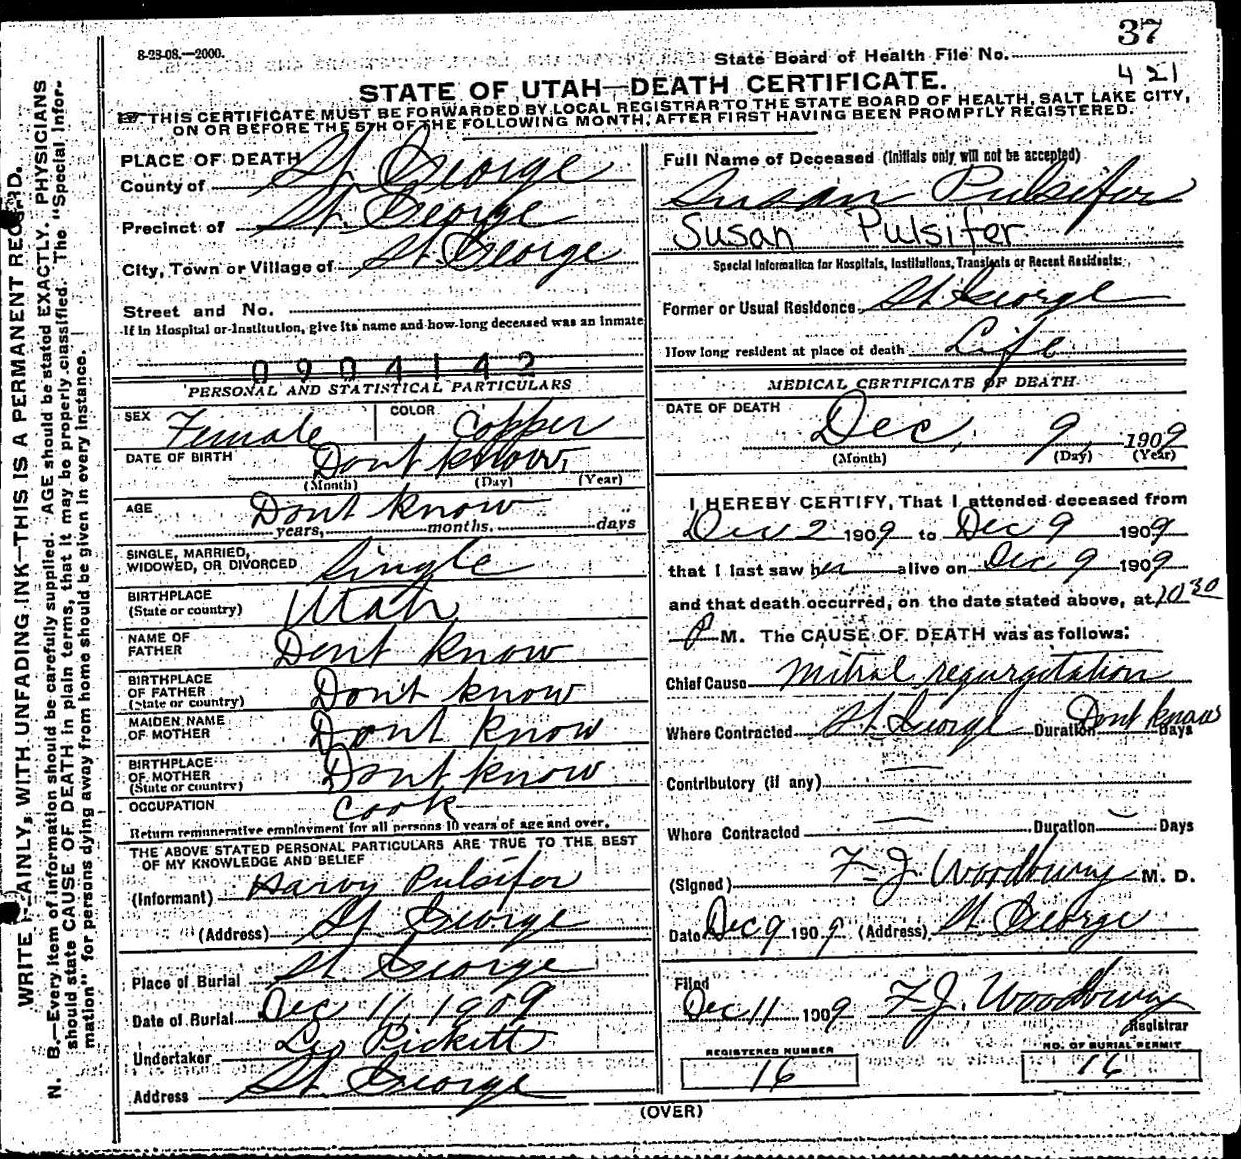 37
8-23-08.—2000.
State Board of Health File No.
421
STATE OF UTAH—DEATH CERTIFICATE.
THIS CERTIFICATE MUST BE FORWARDED BY LOCAL REGISTRAR TO THE STATE BOARD OF HEALTH, SALT LAKE CITY,
ON OR BEFORE THE 5TH OF THE FOLLOWING MONTH, AFTER FIRST HAVING BEEN PROMPTLY REGISTERED.
WRITE PLAINLY, WITH UNFADING INK—THIS IS A PERMANENT RECORD.
N. B.—Every item of information should be carefully supplied. AGE should be stated EXACTLY. PHYSICIANS
should state CAUSE OF DEATH in plain terms, that it may be properly classified. The "Special Infor-
mation" for persons dying away from home should be given in every instance.
PLACE OF DEATH
County of St. George
Precinct of St. George
City, Town or Village of St George
Street and No.
If in Hospital or Institution, give its name and how long deceased was an inmate
0904142
PERSONAL AND STATISTICAL PARTICULARS
SEX Female COLOR Copper
DATE OF BIRTH Dont know,
(Month) (Day) (Year)
AGE Dont know
years, months, days
SINGLE, MARRIED,
WIDOWED, OR DIVORCED Single
BIRTHPLACE
(State or country) Utah
NAME OF
FATHER Dont know
BIRTHPLACE
OF FATHER
(State or country) Dont know
MAIDEN NAME
OF MOTHER Dont know
BIRTHPLACE
OF MOTHER
(State or country) Dont know
OCCUPATION Cook
Return remunerative employment for all persons 10 years of age and over.
THE ABOVE STATED PERSONAL PARTICULARS ARE TRUE TO THE BEST
OF MY KNOWLEDGE AND BELIEF
(Informant) Harvy Pulsifer
(Address) St. George
Place of Burial St. George
Date of Burial Dec 11, 1909
Undertaker Pickett
Address St. George
Full Name of Deceased (Initials only will not be accepted)
Susan Pulsifer
Susan Pulsifer
Special Information for Hospitals, Institutions, Transients or Recent Residents:
Former or Usual Residence St George
How long resident at place of death Life
MEDICAL CERTIFICATE OF DEATH
DATE OF DEATH
Dec, 9, 1909
(Month) (Day) (Year)
I HEREBY CERTIFY, That I attended deceased from
Dec 2 1909 to Dec 9 1909
that I last saw her alive on Dec 9 1909
and that death occurred, on the date stated above, at 10 30
P M. The CAUSE OF DEATH was as follows:
Chief Cause Mitral regurgitation
Where Contracted St. George Duration Dont know Days
Contributory (if any) —
Where Contracted — Duration — Days
(Signed) F. J. Woodbury M. D.
Date Dec 9 1909 (Address) St. George
Filed
Dec 11 1909 F. J. Woodbury
Registrar
REGISTERED NUMBER
16
NO. OF BURIAL PERMIT
16
(OVER)